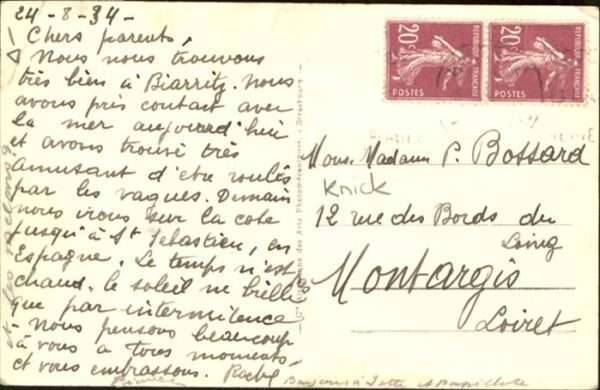 24-8-34-
Chers parents,
Nous nous trouvons
très bien à Biarritz. Nous
avons pris contact avec
la mer aujourd'hui
et avons trouvé très
amusant d'être roulés
par les vagues. Demain
nous irons sur la cote
jusqu'à St Sébastien, en
Espagne. Le temps n'est
chaud. le soleil ne brille
que par intermitence
- Nous pensons beaucoup
à vous a tous moments,
et vous embrassons.
20c 20c
REPUBLIQUE FRANÇAISE REPUBLIQUE FRANÇAISE
POSTES POSTES
Mons. Madame P. Bossard
Knick
12 rue des Bords du
Loing
Montargis
Loiret